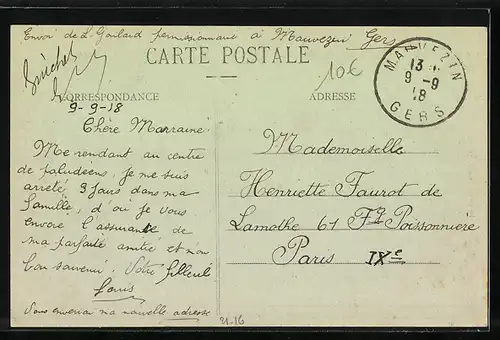 Envoi de L. Goulard permissionnaire à Mauvezin Gers
CARTE POSTALE
CORRESPONDANCE
9-9-18
Chère Marraine
Me rendant au centre
de paludéens, je me suis
arrêté 3 jours dans ma
famille, d'où je vous
envoie l'assurance de
ma parfaite amitié et mon
bon souvenir. Votre filleul
Louis
Vous enverrai ma nouvelle adresse
10€
ADRESSE
MAUVEZIN
13
9 -9
18
GERS
Mademoiselle
Henriette Faurot de
Lamothe 61 Fg Poissonnière
Paris IXe
21-16